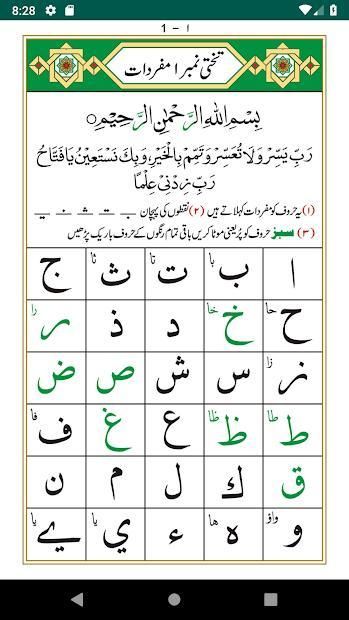 8:28
ا - 1
تختی نمبر ۱ مفردات
بِسْمِ اللهِ الرَّحْمٰنِ الرَّحِيْمِ
رَبِّ يَسِّرْ وَلَا تُعَسِّرْ وَتَمِّمْ بِالْخَيْرِ، وَبِكَ نَسْتَعِيْنُ يَا فَتَّاحُ
رَبِّ زِدْنِيْ عِلْمًا
(۱) یہ حروف کو مفردات کہلاتے ہیں (۲) نقطوں کی پہچان بـ تـ ثـ نـ یـ
(۳) سبز حروف کو پُر یعنی موٹا کریں باقی تمام رنگوں کے حروف باریک پڑھیں
ا ب با ت تا ث ثا ج
ح حا خ خا د ذ ر را
ز زا س ش ص ض
ط طا ظ ظا ع غ ف فا
ق ك ل م ن
و واؤ ه ها ء ي يا ے يا